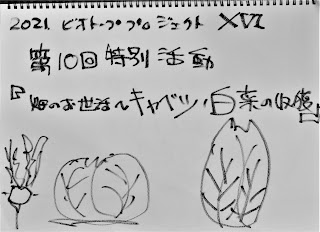 2021. ビオトーププロジェクト XVI
第10回 特別 活動
『畑のお世話〜キャベツ・白菜の収穫』